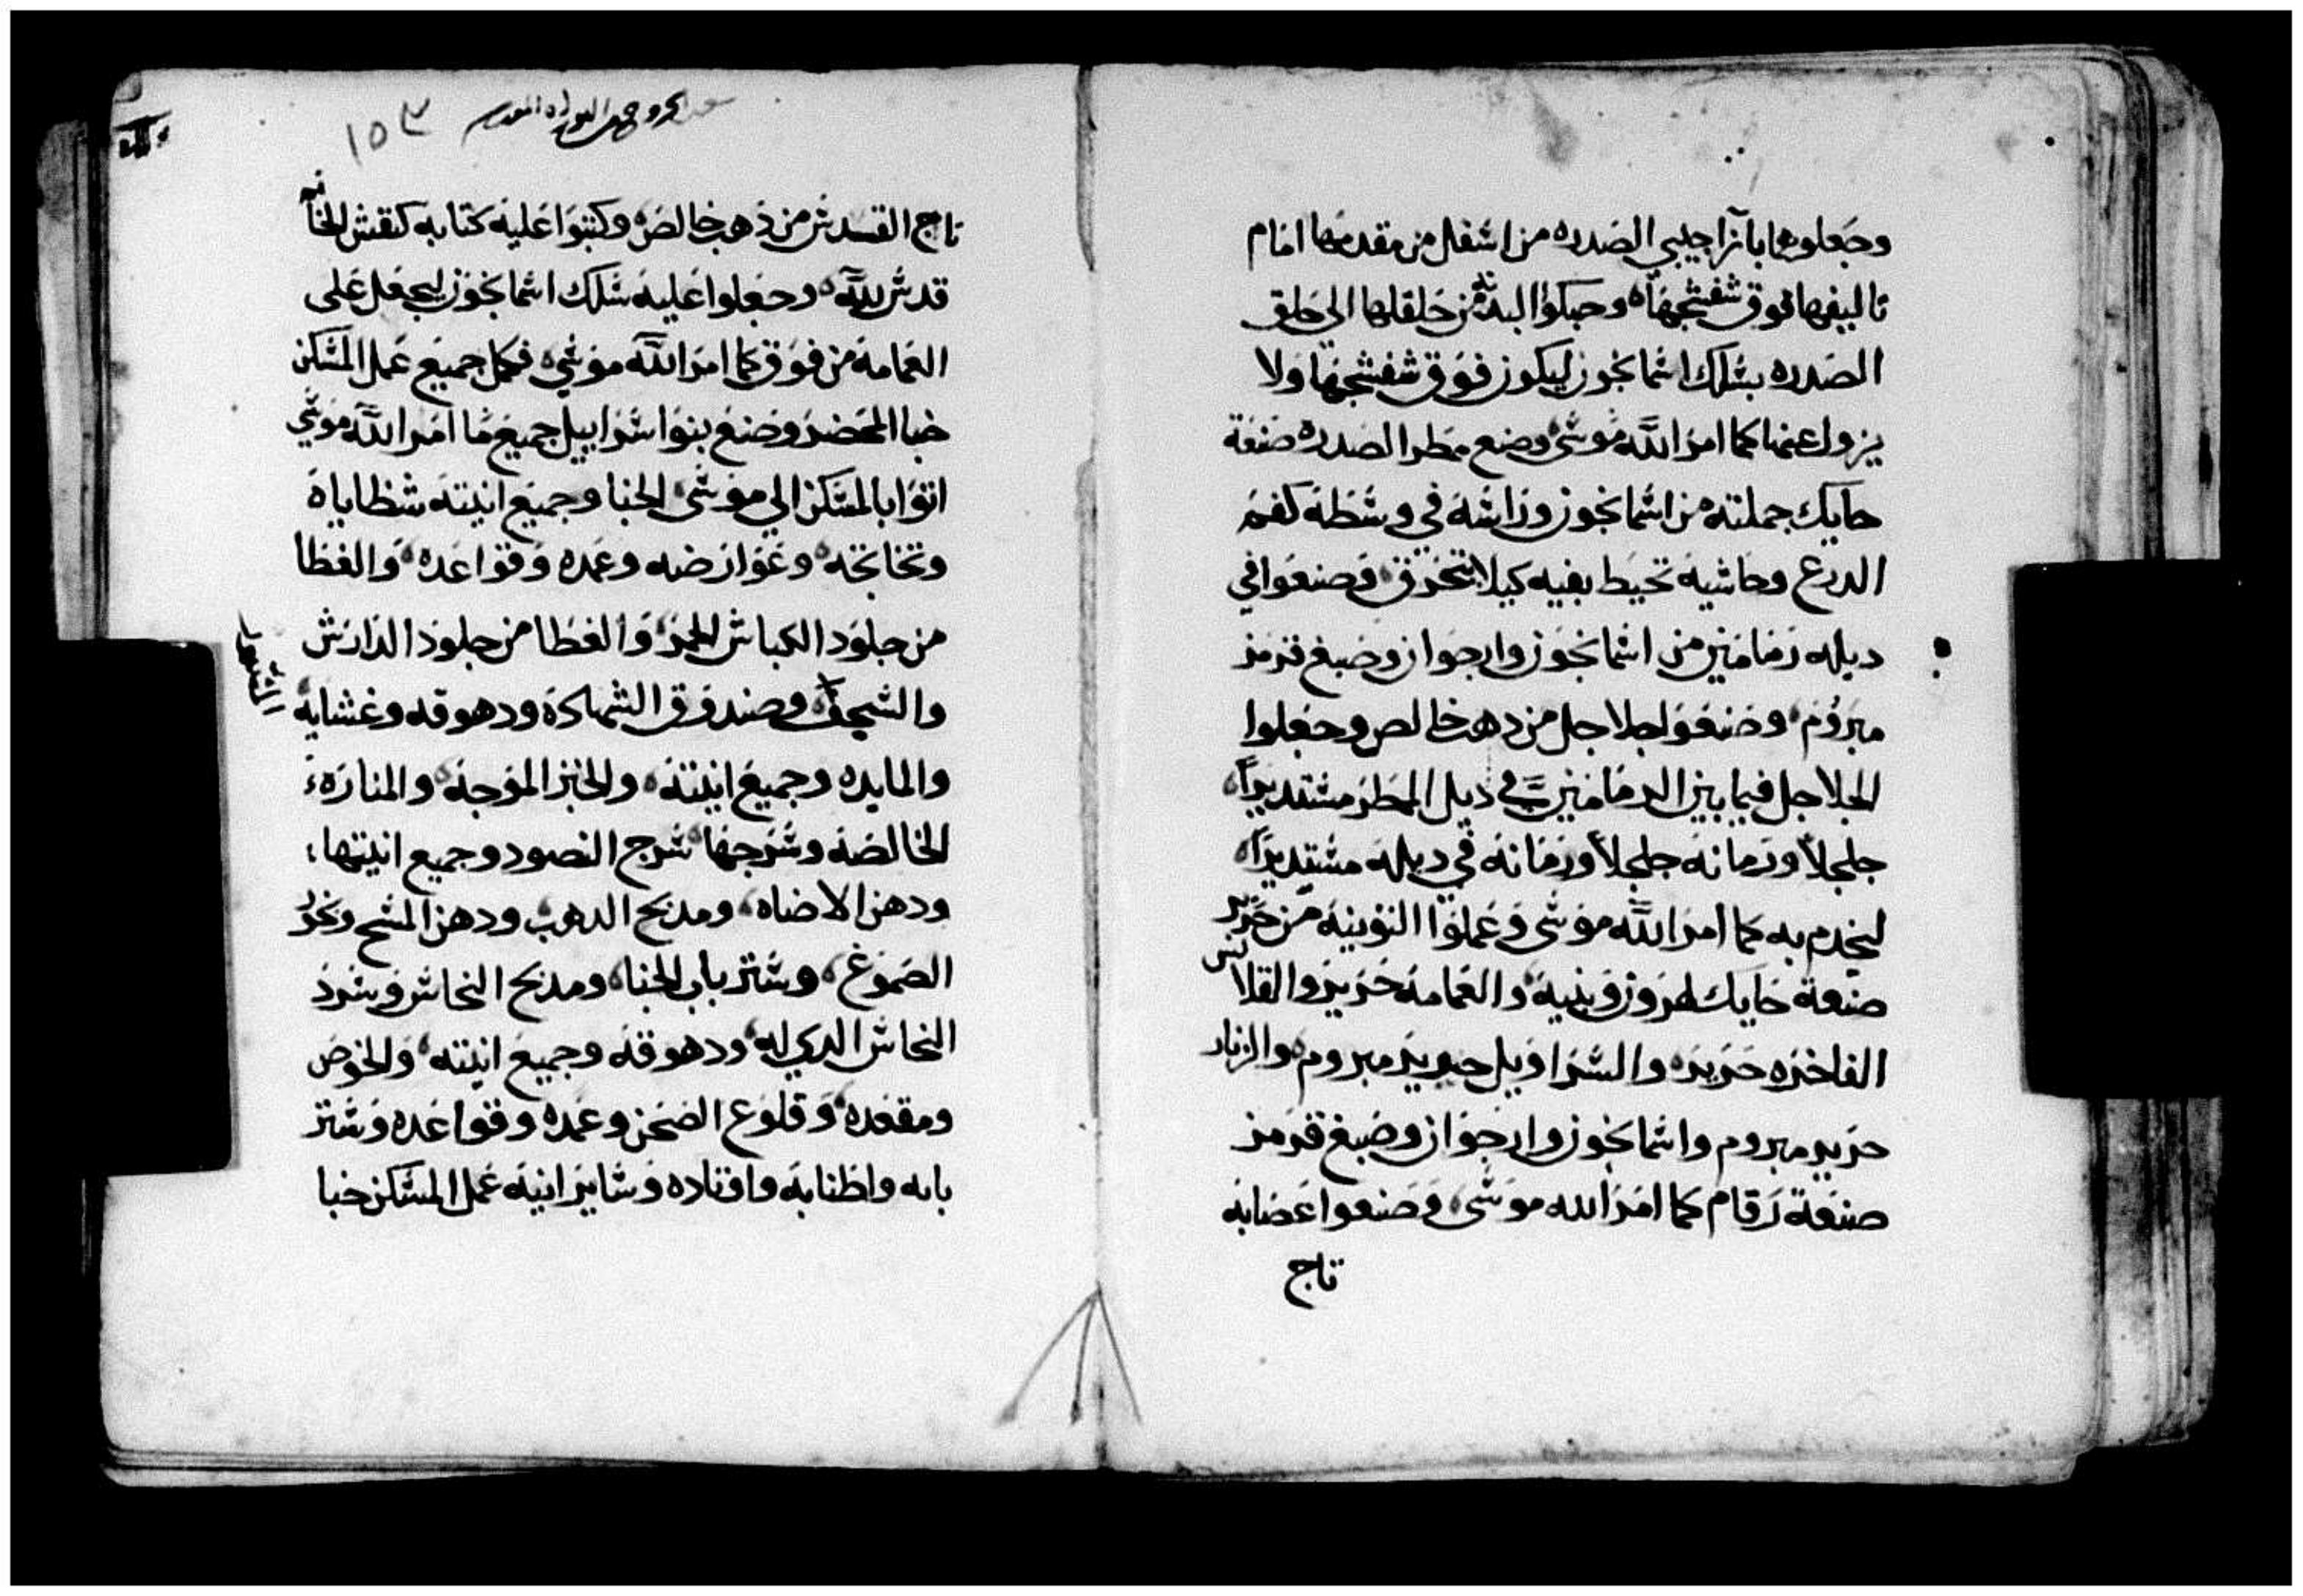 وجعلوهما بازا جيبي الصدره من اسفل من مقدمها امام
تاليفها فوق شفشجها وحبكوا البدنه من حلقاتها الي حلق
الصدره بسلك اسمانجون ليكون فوق شفشجها ولا
يزول عنها كما امر الله موسى وصنع ممطر الصدره صنعة
حايك جملته من اسمانجون وراسه في وسطه كفم
الدرع وحاشيه تحيط بفيه كيلا يتخرق وصنعوا في
ديله رمامين من اسمانجون وارجوان وصبغ قرمز
مبروم وصنعوا جلاجل من دهب خالص وجعلوا
الجلاجل فيما بين الرمامين في ديل الممطر مستديراً
جلجلاً ورمانه جلجلاً ورمانه في ديله مستديراً
ليخدم به كما امر الله موسى وعملوا التونيه من حرير
صنعة حايك لهرون وبنيه والعمامه حرير والقلانس
الفاخره حرير والسراويل حرير مبروم والزنار
حرير مبروم واسمانجون وارجوان وصبغ قرمز
صنعة رقام كما امر الله موسى وصنعوا عصابه
تاج
١٥٣
تاج القدس من ذهب خالص وكتبوا عليه كتابه كنقش الخاتم
قدس لله وجعلوا عليه سلك اسمانجون ليجعل على
العمامه من فوق كما امر الله موسي فكمل جميع عمل المسكن
خبا المحضر وصنع بنوا اسراييل جميع ما امر الله موسي
اتوا بالمسكن الي موسى الخبا وجميع انيته شظاياه
وتخاتجه وعوارضه وعمده وقواعده والغطا
من جلود الكباش الحمر والغطا من جلود الدارش
والسجف وصندوق الشهاده ودهوقه وغشايه
والمايده وجميع انيته والخبز الموجه والمناره
الخالصه وسرجها سرج النصود وجميع انيتها
ودهن الاضاه ومدبح الدهب ودهن المسح وبخور
الصموغ وستر باب الخبا ومدبح النحاس وسرد
النحاس الدي له ودهوقه وجميع انيته والحوض
ومقعده وقلوع الصحن وعمده وقواعده وستر
بابه واطنابه واوتاده وساير انيه عمل المسكن خبا